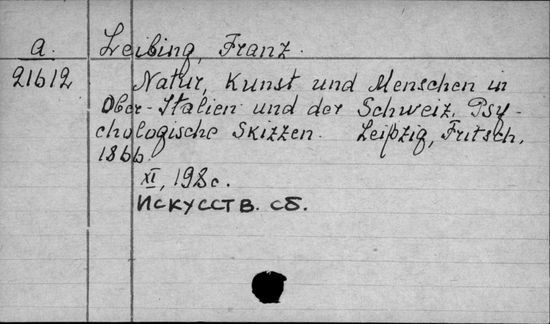 a. Leibing, Franz.
21612 Natur, Kunst und Menschen in
Ober-Italien und der Schweiz. Psy-
chologische Skizzen. Leipzig, Fritsch,
1866.
XI, 198 c.
Искусств. сб.